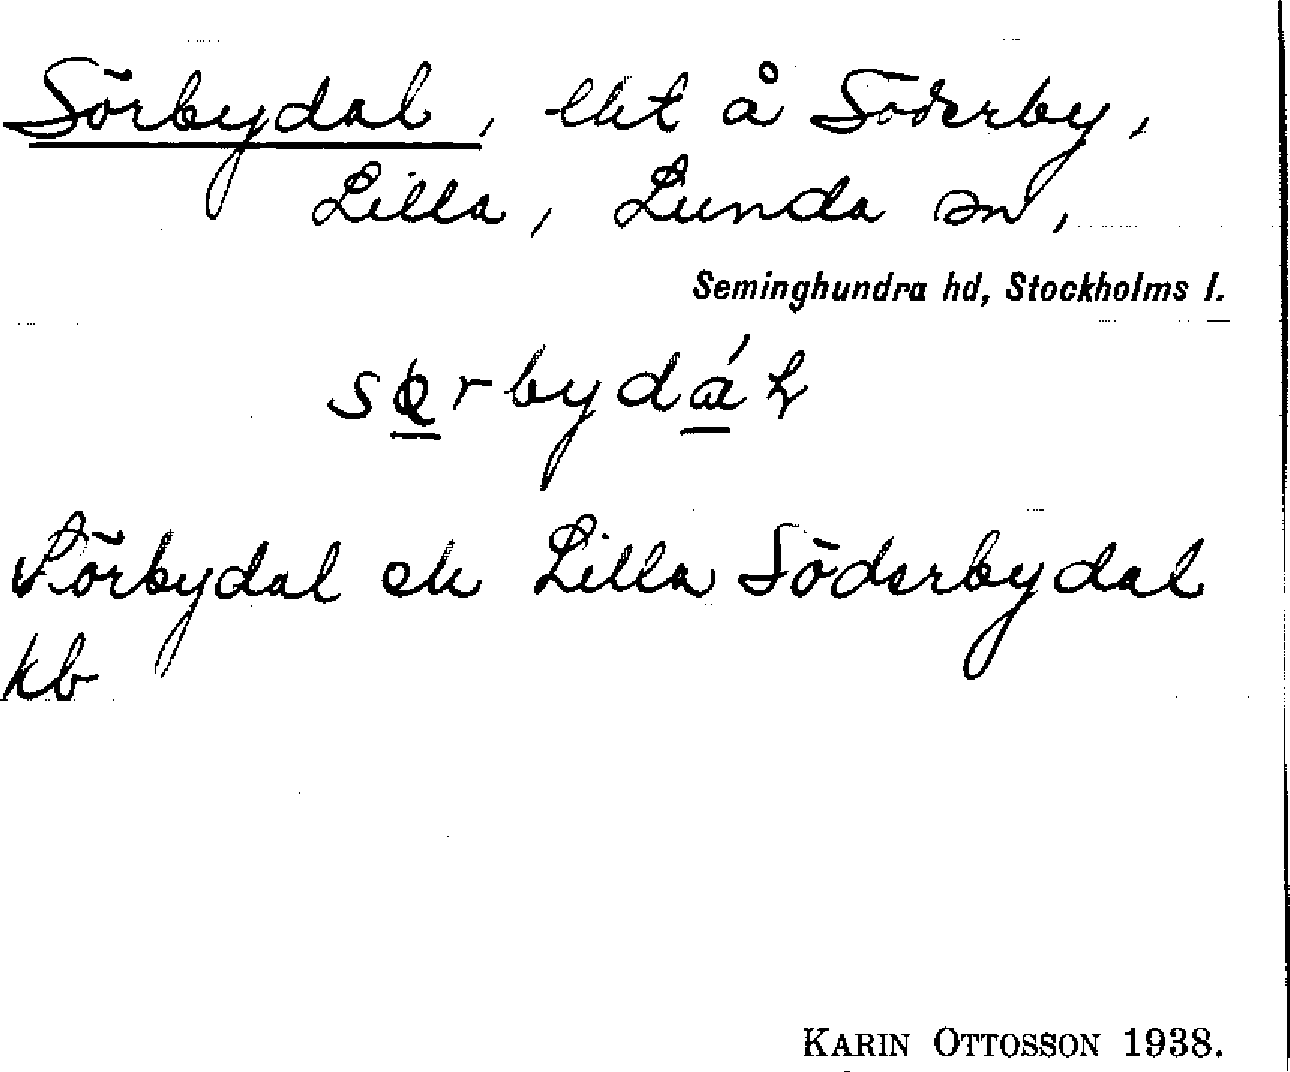 Sörbydal, lht å Söderby,
Lilla, Lunda sn,
Seminghundra hd, Stockholms l.
Sörbydal el Lilla Söderbydal
kb
KARIN OTTOSSON 1938.